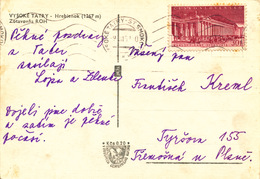 VYSOKÉ TATRY - Hrebienok (1267 m)
Zotavovňa ROH
Pěkné pozdravy
z Tater
zasílají
Lojza a Zdenka
Dojeli jsme dobře
a zatím je pěkné
počasí.
Vážený pan
František Kreml
Tyršova 155
Třemošná u Plzně.